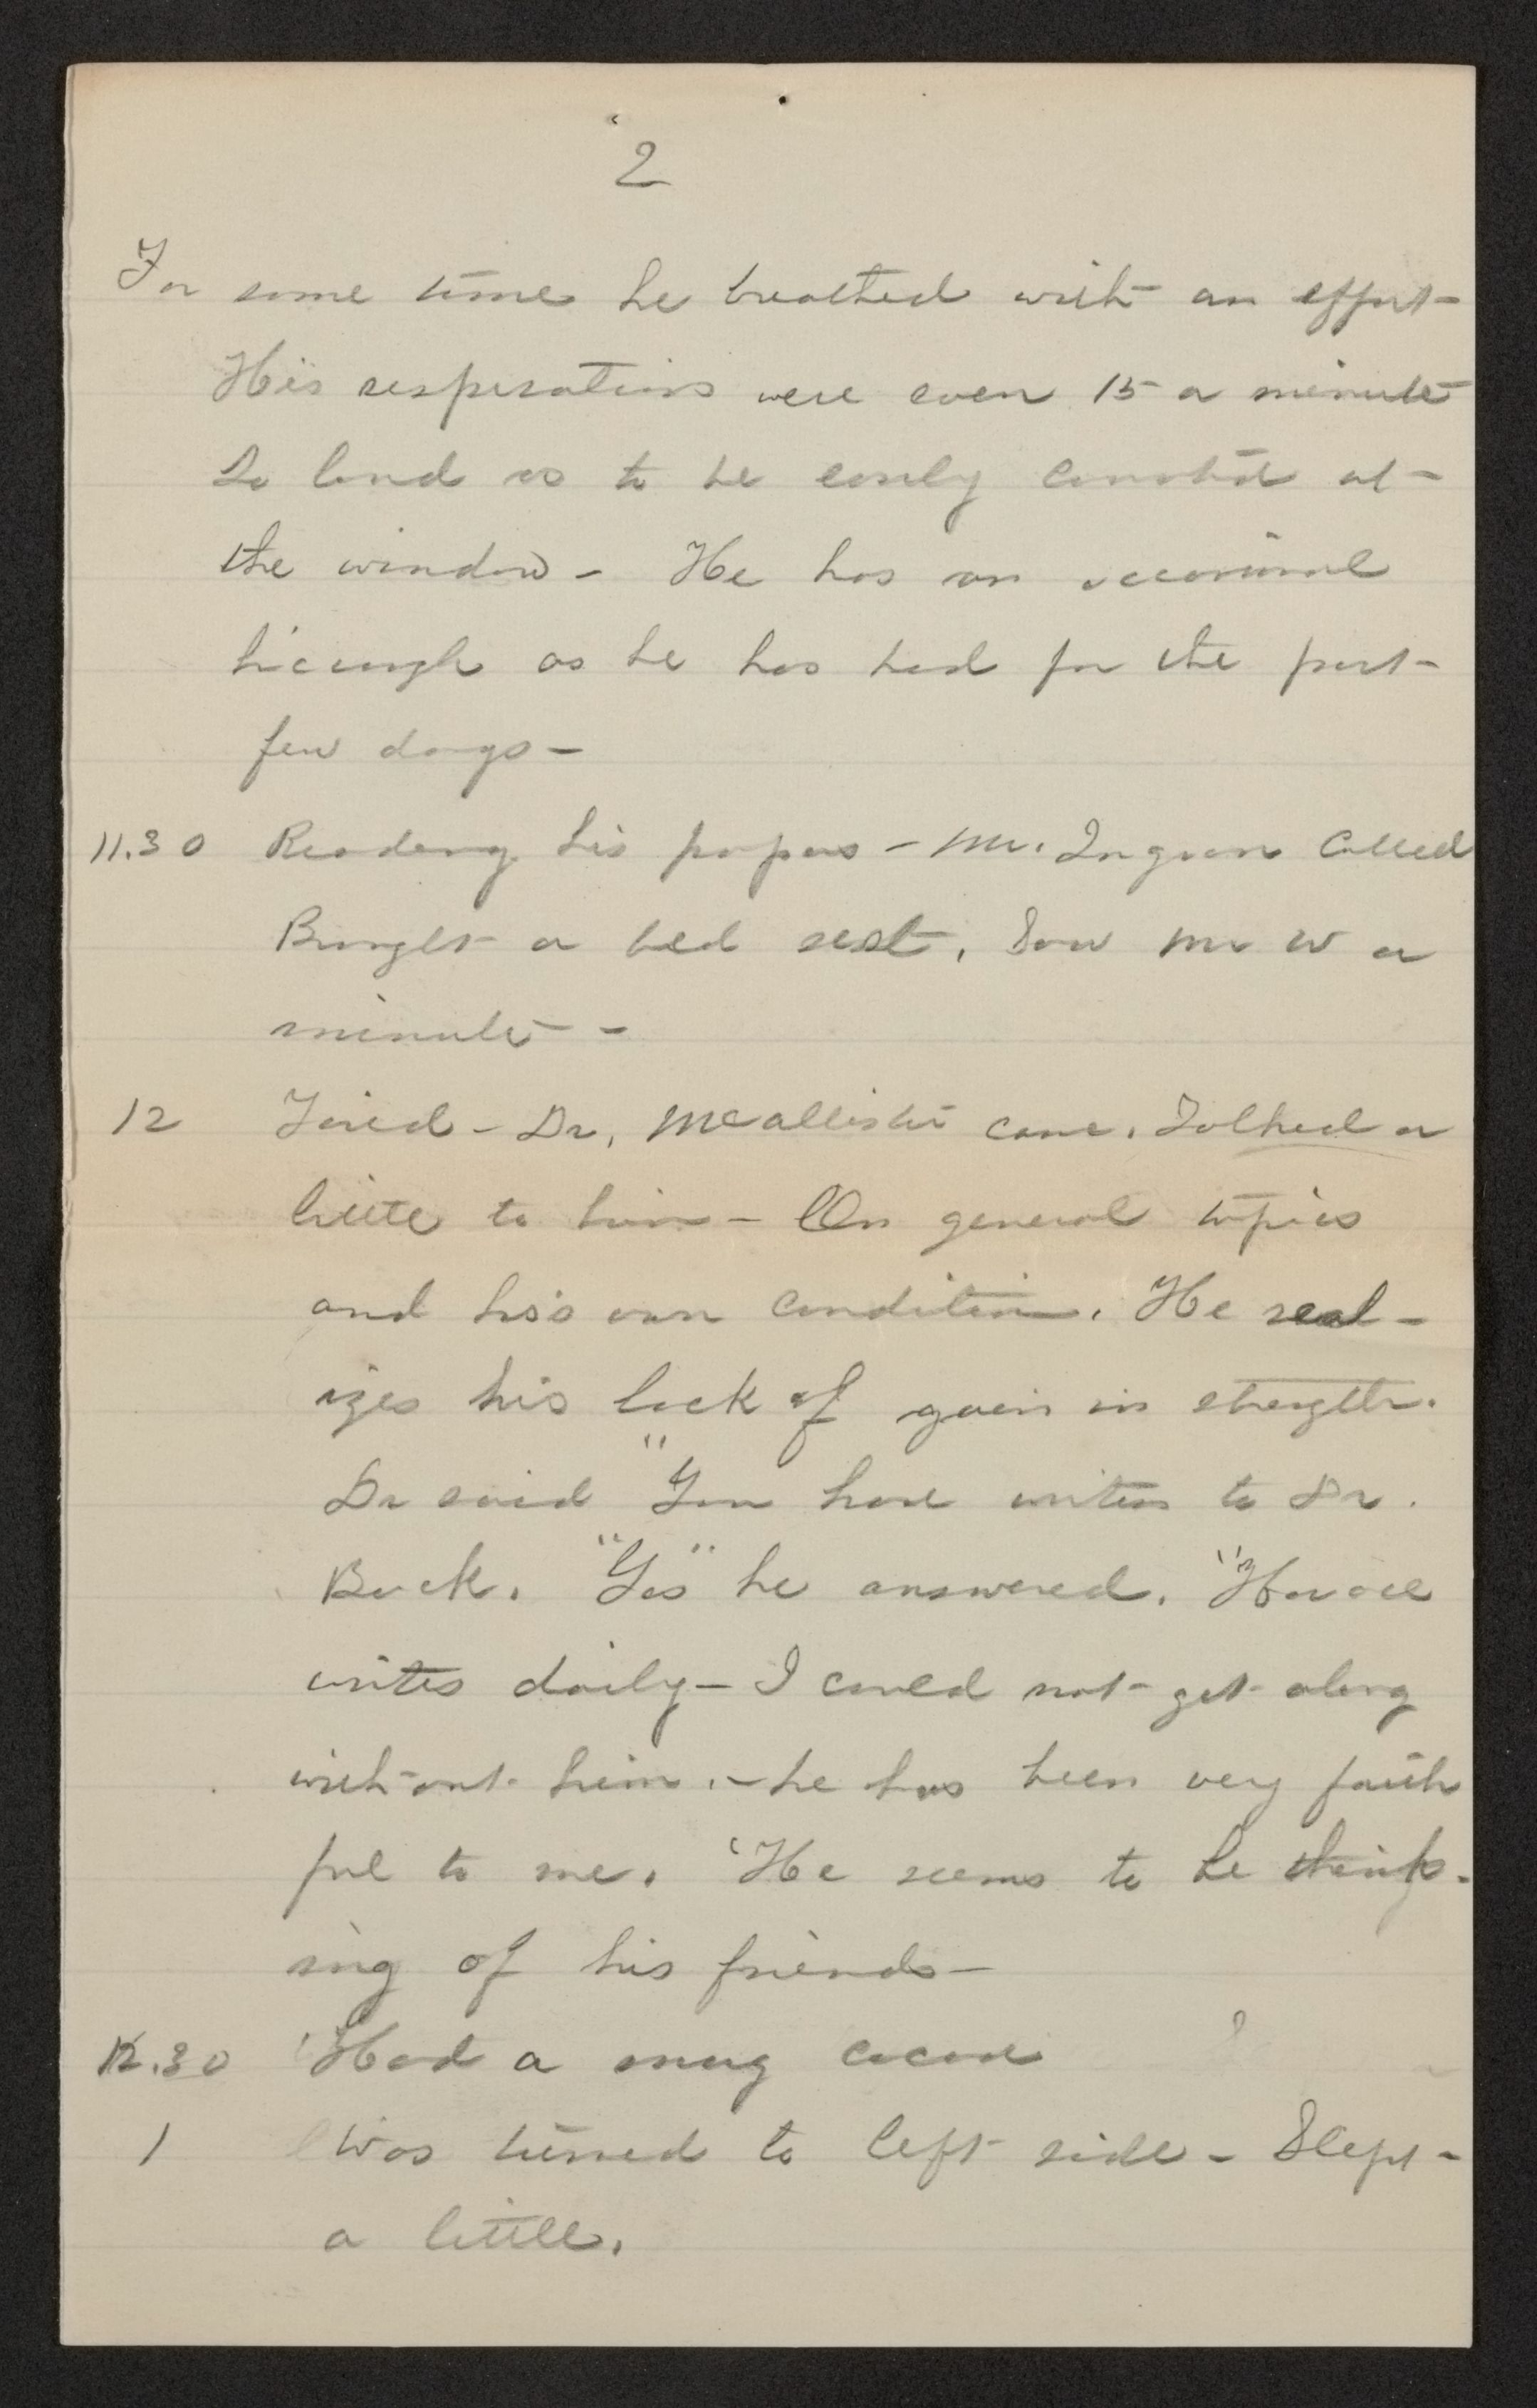 2
For some time he breathed with an effort-
His respirations were even 15 a minute
So loud as to be easily counted at-
the window - He has an occasional
hiccough as he has had for the past-
few days-
11.30 Reading his papers - Mr. Ingram Called
Brought a bed rest, Saw Mr W a
minute -
12 Tired - Dr, McAllister came. Talked a
little to him - On general topics
and his own condition. He real-
izes his lack of gain in strength.
Dr said "You have written to Dr.
Buck. "Yes" he answered. "Horace
writes daily - I could not get along
without him. - he has been very faith
ful to me. 'He seems to be think-
ing of his friends-
12.30 Had a mug cocoa
1 Was turned to left side - Slept-
a little.